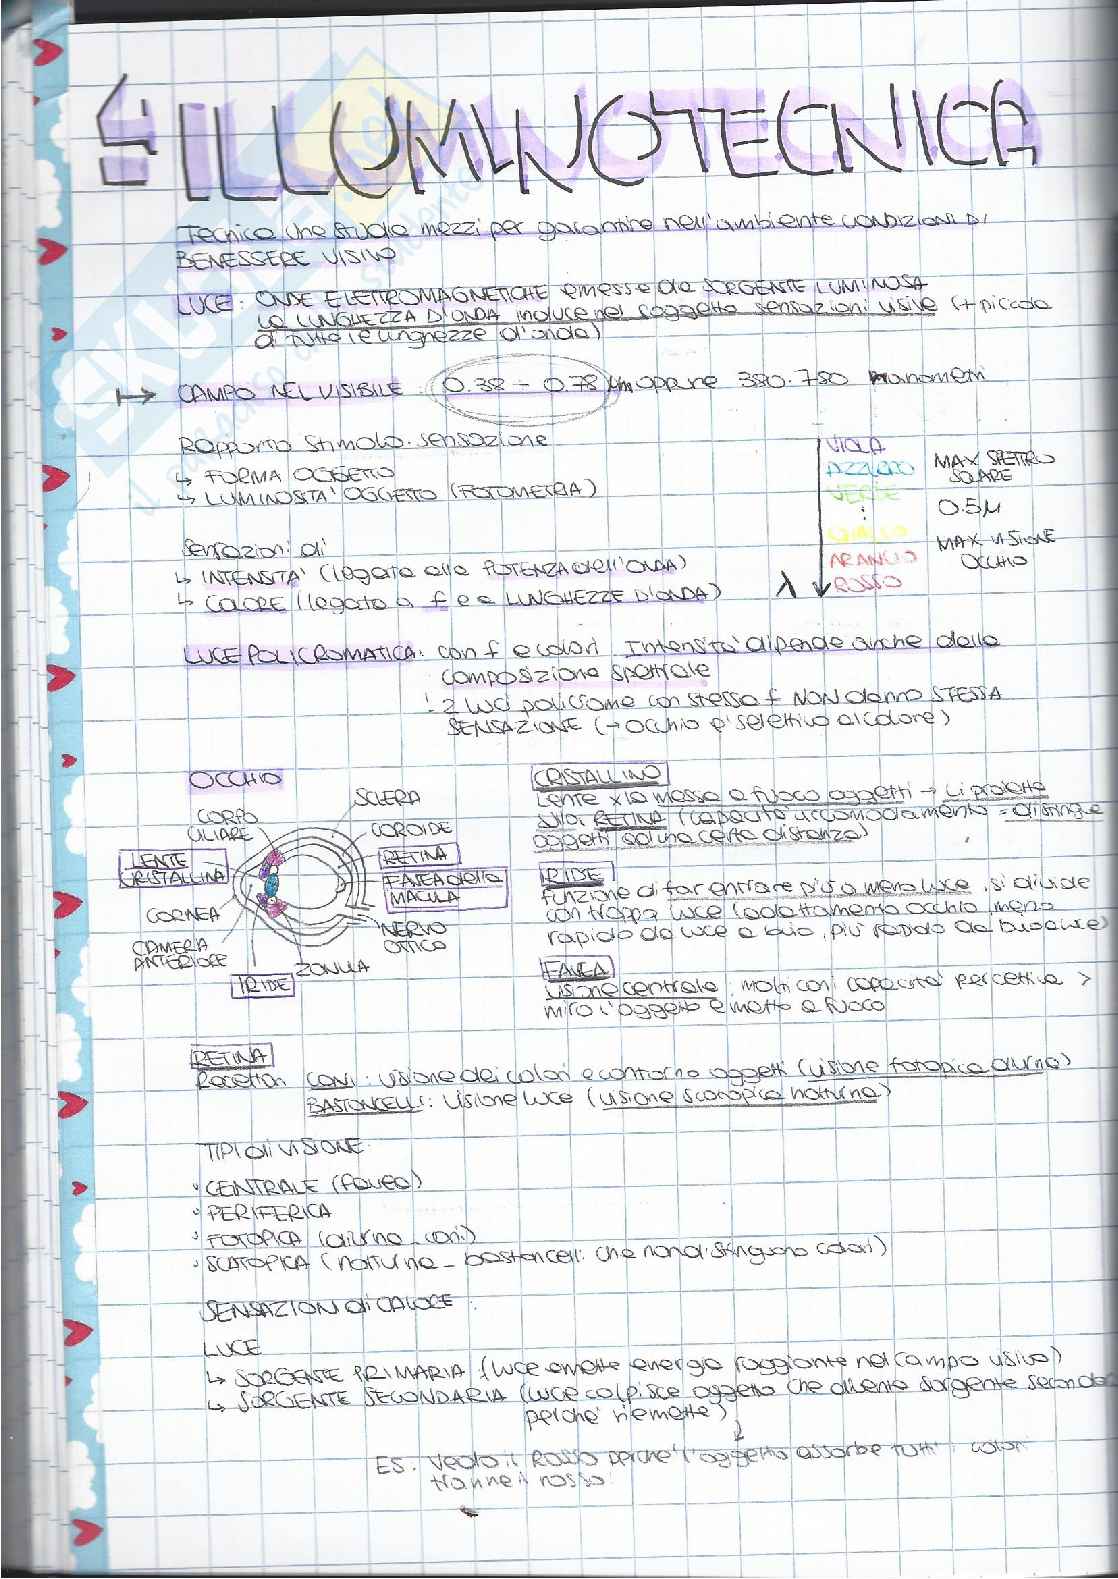 ILLUMINOTECNICA
Tecnica che studia mezzi per garantire nell'ambiente CONDIZIONI DI
BENESSERE VISIVO
LUCE: ONDE ELETTROMAGNETICHE emesse da SORGENTE LUMINOSA
La LUNGHEZZA D'ONDA induce nel soggetto sensazioni visive (+ piccola
di tutte le lunghezze d'onda)
↦ CAMPO NEL VISIBILE: 0.38 - 0.78 μm oppure 380.780 nanometri
Rapporto stimolo-sensazione
↳ FORMA OGGETTO
↳ LUMINOSITA' OGGETTO (FOTOMETRIA)
VIOLA
AZZURRO
VERDE
:
GIALLO
ARANCIO
λ ROSSO
MAX SPETTRO
SOLARE
0.5μ
MAX VISIONE
OCCHIO
Sensazioni di
↳ INTENSITA' (legata alla POTENZA dell'ONDA)
↳ COLORE (legato a f e a LUNGHEZZE D'ONDA)
LUCE POLICROMATICA: con f e colori. Intensità dipende anche dalla
composizione spettrale
! 2 luci policrome con stessa f NON danno STESSA
SENSAZIONE (→ occhio è selettivo al colore)
OCCHIO
SCLERA
CORPO
CILIARE
COROIDE
LENTE
CRISTALLINA
RETINA
FAVEA della
MACULA
CORNEA
NERVO
OTTICO
CAMERA
ANTERIORE
ZONULA
IRIDE
CRISTALLINO
Lente x la messa a fuoco oggetti → li proietta
sulla RETINA (capacità accomodamento = distingue
oggetti solo una certa distanza)
IRIDE
funzione di far entrare più o meno luce, si chiude
con troppa luce (adattamento occhio, meno
rapido da luce a buio, più rapido da buio a luce)
FAVEA
Visione centrale, molti coni capacità percettiva >
miro l'oggetto e metto a fuoco
RETINA
Recettori CONI: visione dei colori e contorno oggetti (visione fotopica diurna)
BASTONCELLI: visione luce (visione scotopica notturna)
TIPI di VISIONE:
• CENTRALE (favea)
• PERIFERICA
• FOTOPICA (diurna - coni)
• SCOTOPICA (notturna - bastoncelli che non distinguono colori)
SENSAZIONI di CALORE:
LUCE
↳ SORGENTE PRIMARIA (luce emette energia raggiante nel campo visivo)
↳ SORGENTE SECONDARIA (luce colpisce oggetto che diventa sorgente
perché riemette)
ES. Vedo il Rosso perché l'oggetto assorbe tutti i colori
tranne il rosso